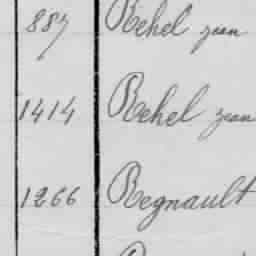 887 Rehel jean
1414 Rehel jean
1266 Regnault